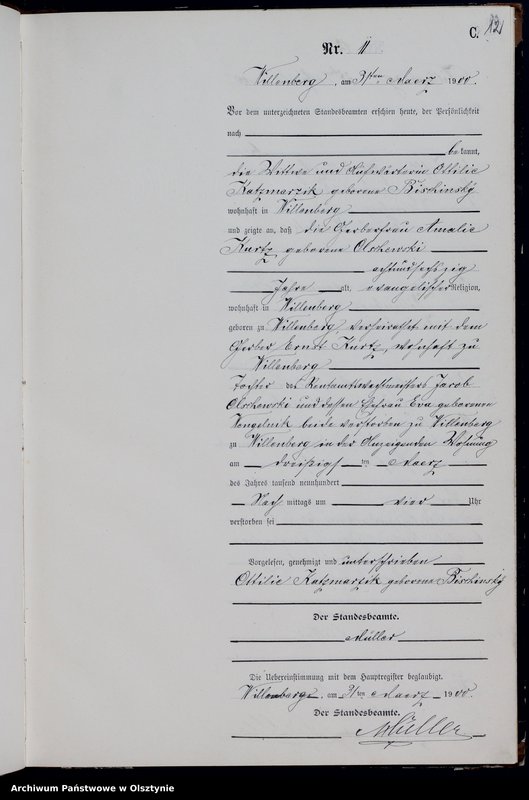 C. 12
Nr. 11
Willenberg, am 31ten Maerz 1900.
Vor dem unterzeichneten Standesbeamten erschien heute, der Persönlichkeit
nach
bekannt,
die Wittwe und Aufwärterin Ottilie
Katzmarzik geborene Bischinsky
wohnhaft in Willenberg
und zeigte an, daß die Gerberfrau Amalie
Kurtz geborene Olschewski
achtundsechszig
Jahre alt, evangelischer Religion,
wohnhaft in Willenberg
geboren zu Willenberg, verheirathet mit dem
Gerber Ernst Kurtz, wohnhaft zu
Willenberg
Tochter des Jacob
Olschewski und dessen Ehefrau Eva geborenen
beide verstorben zu Willenberg
zu Willenberg in der Anzeigenden Wohnung
am dreißigsten Maerz
des Jahres tausend neunhundert
Nachmittags um vier Uhr
verstorben sei
Vorgelesen, genehmigt und unterschrieben
Ottilie Katzmarzik geborene Bischinsky
Der Standesbeamte.
Müller
Die Uebereinstimmung mit dem Hauptregister beglaubigt.
Willenberg, am 31ten Maerz 1900.
Der Standesbeamte.
Müller
Archiwum Państwowe w Olsztynie